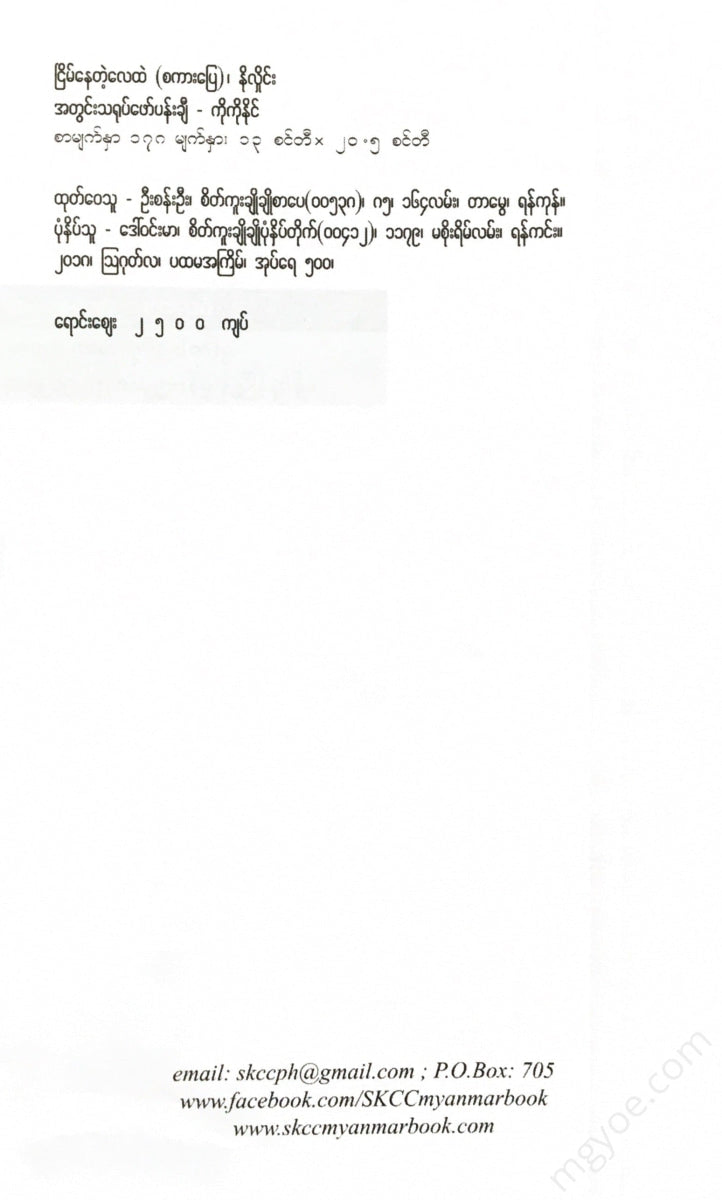 ငြိမ်နေတဲ့လေထဲ (စကားပြေ)၊ နိုလှိုင်း
အတွင်းသရုပ်ဖော်ပန်းချီ - ကိုကိုနိုင်
စာမျက်နှာ ၁၇၈ မျက်နှာ၊ ၁၃ စင်တီ× ၂၀.၅ စင်တီ
ထုတ်ဝေသူ - ဦးစန်းဦး၊ စိတ်ကူးချိုချိုစာပေ(၀၀၅၃၈)၊ ၈၅၊ ၁၆၄လမ်း၊ တာမွေ၊ ရန်ကုန်။
ပုံနှိပ်သူ - ဒေါ်ဝင်းမာ၊ စိတ်ကူးချိုချိုပုံနှိပ်တိုက်(၀၀၄၁၂)၊ ၁၁၇၉၊ မစိုးရိမ်လမ်း၊ ရန်ကင်း။
၂၀၁၈၊ ဩဂုတ်လ၊ ပထမအကြိမ်၊ အုပ်ရေ ၅၀၀၊
ရောင်းဈေး ၂ ၅ ၀ ၀ ကျပ်
email: skccph@gmail.com ; P.O.Box: 705
www.facebook.com/SKCCmyanmarbook
www.skccmyanmarbook.com
mgyoe.com